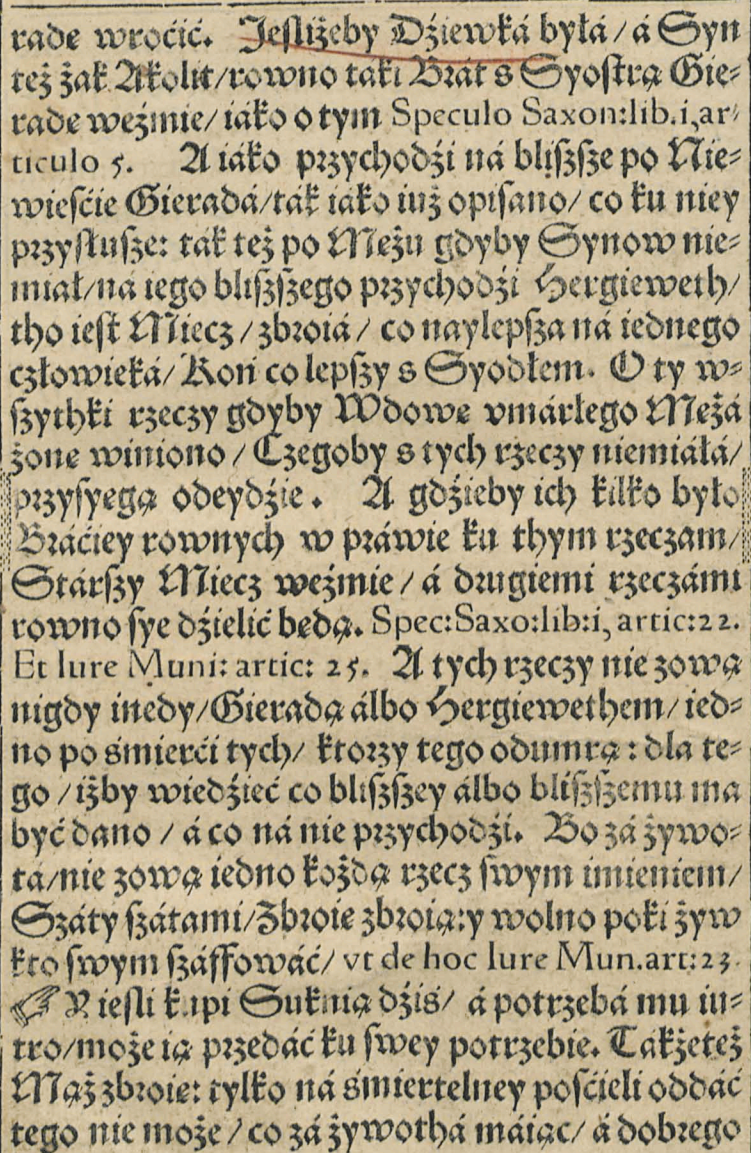 rade wroćić. Jestliżeby Dźiewká byłá / á Syn
też żak Akolit/rowno taki Brát s Syostrą Gie⸗
rade weźmie/ iáko o tym Speculo Saxon:lib.i,ar⸗
ticulo 5. A iáko przychodźi ná bliższe po Nie⸗
wieśćie Gieradá/ták iáko iuż opisano/ co ku niey
przysłusze: ták też po Mężu gdyby Synow nie⸗
miał/ná iego bliższego przychodźi Hergieweth/
tho iest Miecz / zbroiá / co naylepsza ná iednego
człowieká/ Koń co lepszy s Syodłem. O ty w⸗
szythki rzeczy gdyby Wdowe vmárłego Mężá
żone winiono / Czegoby s tych rzeczy niemiáłá/
przysyegą odeydźie. A gdźieby ich kilko było
Bráćiey rownych w práwie ku thym rzeczam/
Stárszy Miecz weźmie / á drugiemi rzeczámi
rowno sye dźielić będą. Spec:Saxo:lib:i, artic:22.
Et Iure Muni: artic: 25. A tych rzeczy nie zową
nigdy inedy/Gieradą álbo Hergiewethem/ ied⸗
no po śmierći tych/ ktorzy tego odumrą : dla te⸗
go / iżby wiedźieć co bliższey álbo bliższemu ma
być dano / á co ná nie przychodźi. Bo zá żywo⸗
tá/nie zową iedno każdą rzecz swym imieniem/
Száty szátami/Zbroie zbroią:y wolno poki żyw
kto swym száffowáć/ vt de hoc Iure Mun.art:23.
☞ Y iesli kupi Suknią dźiś/ á potrzebá mu iu⸗
tro/może ią przedáć ku swey potrzebie. Tákżeteż
Mąż zbroie: tylko ná śmiertelney pośćieli oddáć
tego nie może / co zá żywothá máiąc/ á dobrego